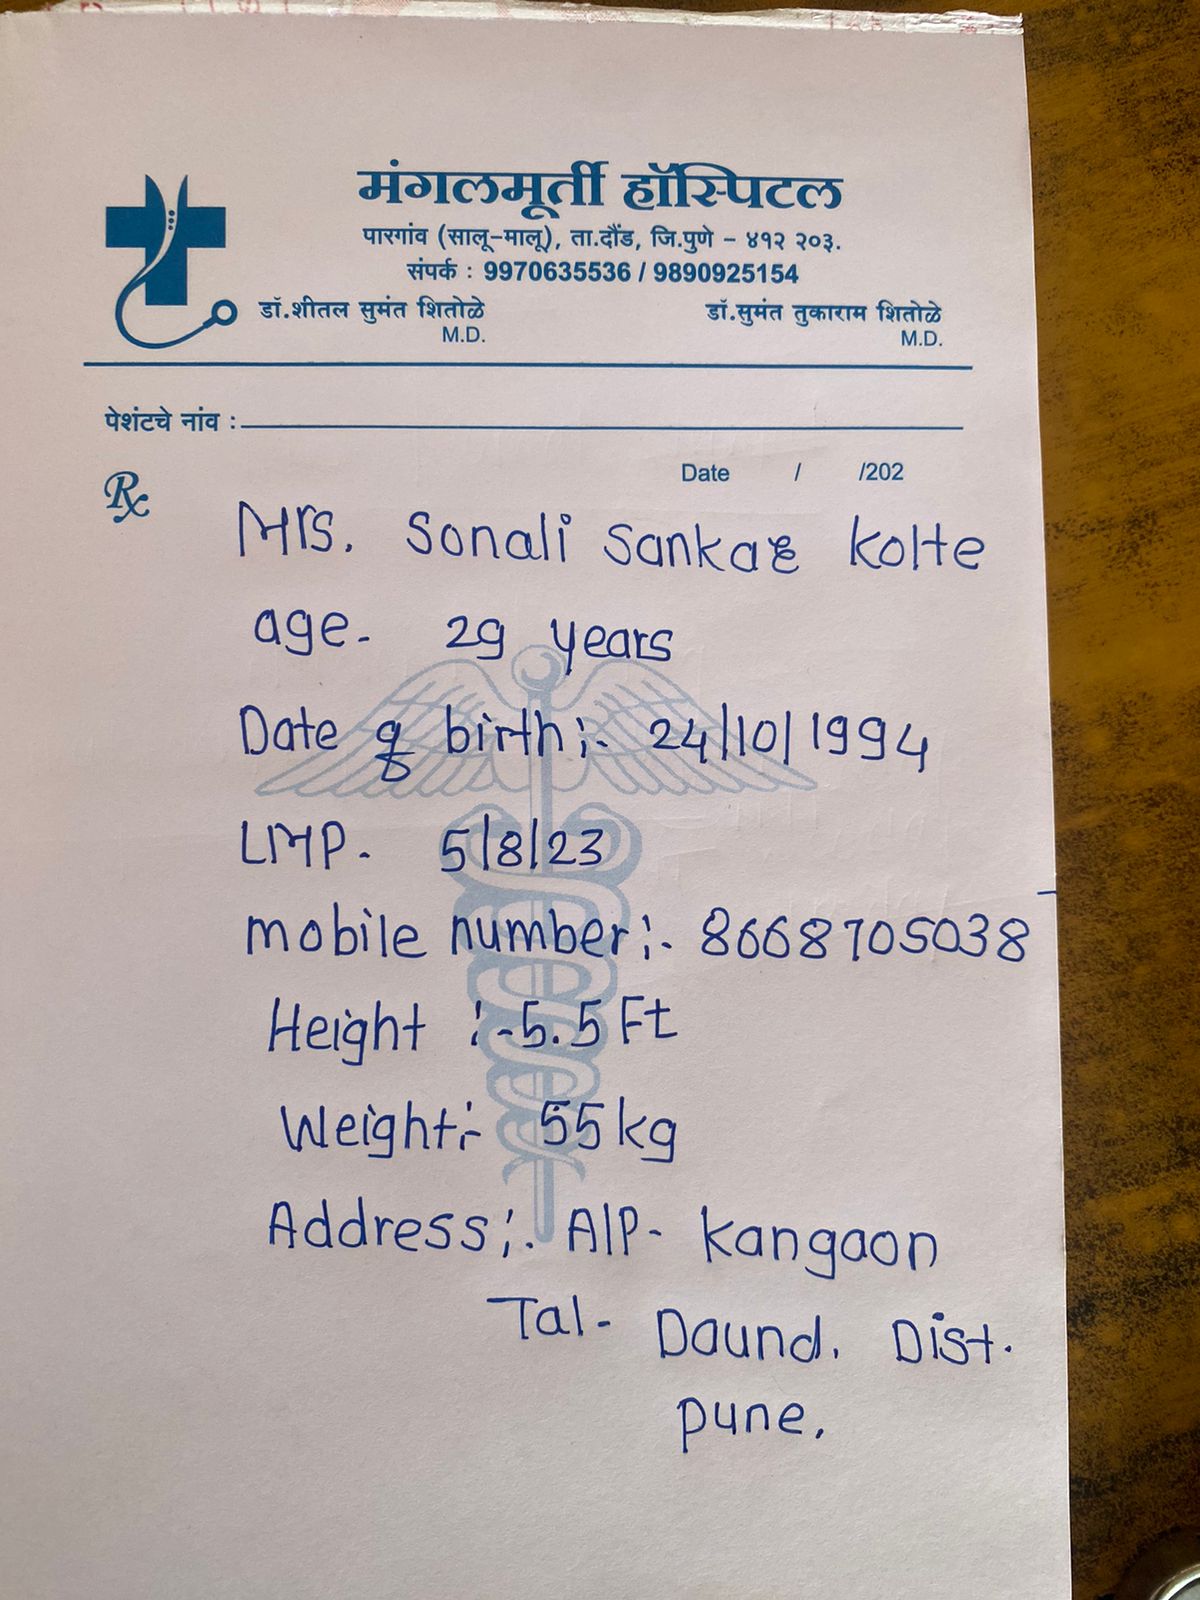 मंगलमूर्ती हॉस्पिटल
पारगांव (सालू-मालू), ता.दौंड, जि.पुणे - ४१२ २०३.
संपर्क : 9970635536 / 9890925154
डॉ.शीतल सुमंत शितोळे डॉ.सुमंत तुकाराम शितोळे
M.D. M.D.
पेशंटचे नांव :
Date / /202
Rx
Mrs. Sonali Sankar Kolte
age- 29 years
Date of birth :- 24/10/1994
LMP- 5/8/23
mobile number :- 8668705038
Height :- 5.5 Ft
Weight :- 55 kg
Address :- A/P- Kangaon
Tal- Daund. Dist.
pune.